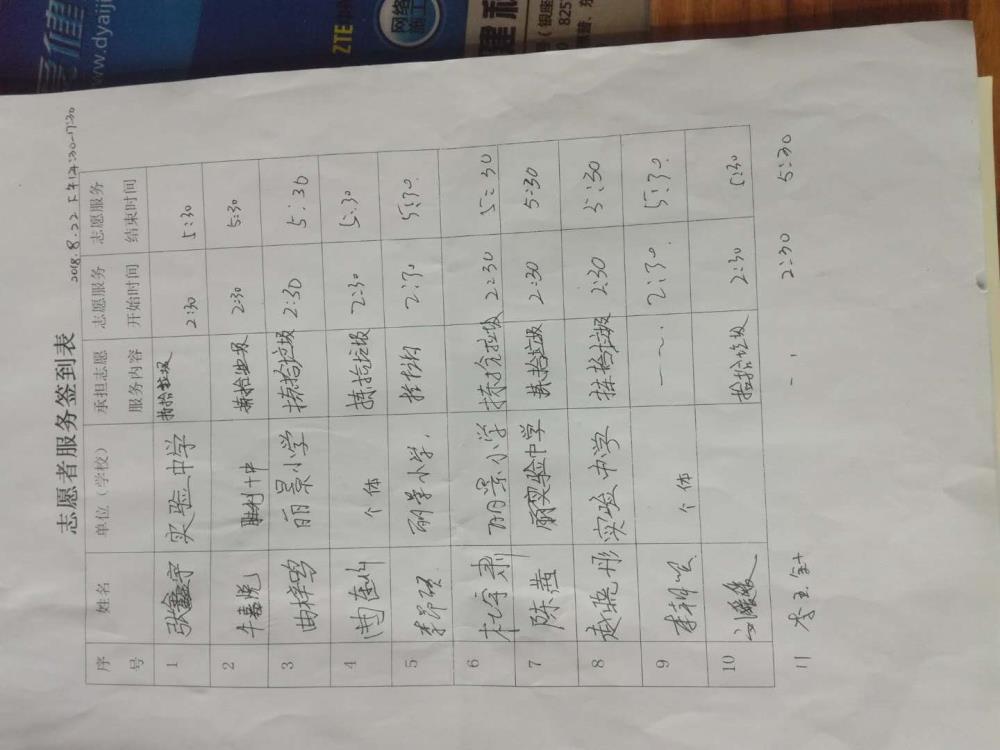 www.dyaiji
ZTE
网络
2018.8.22 下午14:30-17:30
志愿者服务签到表
序号 姓名 单位（学校） 承担志愿服务内容 志愿服务开始时间 志愿服务结束时间
1 张鑫宇 实验中学 捡拾垃圾 2:30 5:30
2 牛嘉悦 2:30 5:30
3 丽景小学 捡拾垃圾 2:30 5:30
4 个体 捡拾垃圾 2:30 5:30
5 丽景小学 2:30 5:30
6 丽景小学 捡拾垃圾 2:30 5:30
7 陈茜 实验中学 捡拾垃圾 2:30 5:30
8 赵晓彤 实验中学 捡拾垃圾 2:30 5:30
9 个体 2:30 5:30
10 刘媛媛 捡拾垃圾 2:30 5:30
11 李玉 2:30 5:30